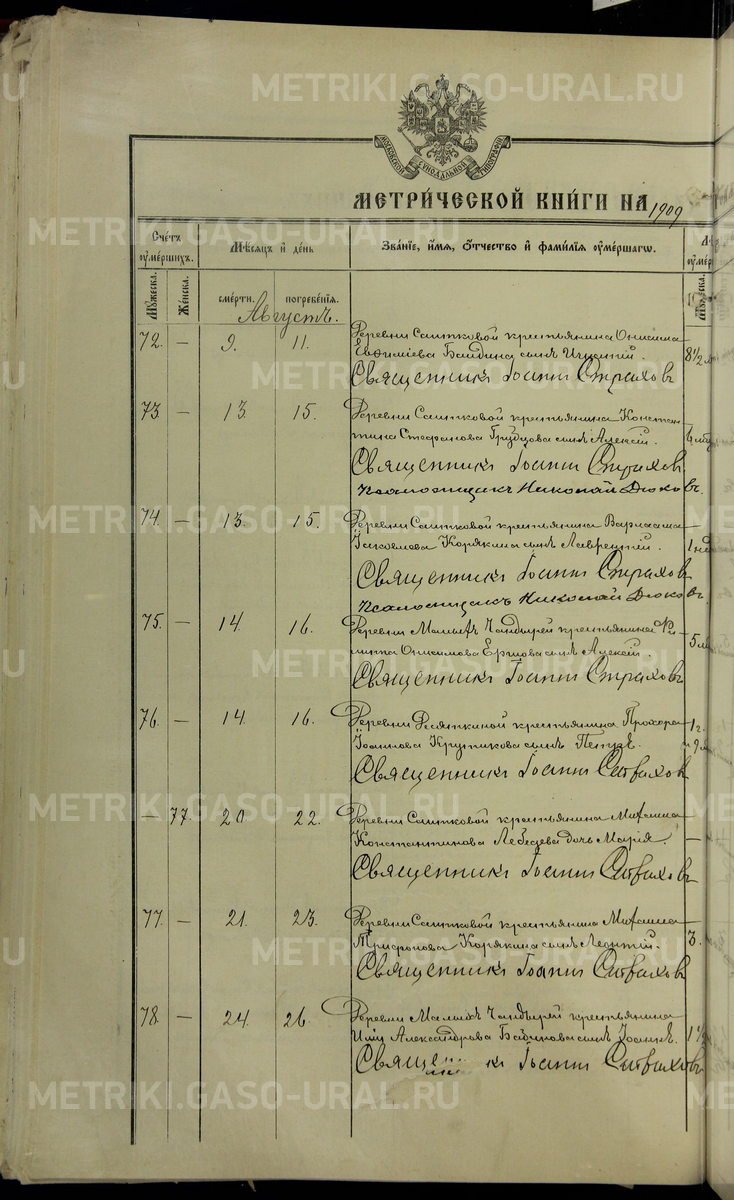 METRIKI.GASO-URAL.RU
МОСКОВСКОЙ СѴНОДАЛЬНОЙ ТИПОГРАФІИ
МЕТРИ́ЧЕСКОЙ КНИ́ГИ НА 1909
Сче́тъ ᲂу҆ме́ршихъ.
Мꙋ́жеска.
Же́нска.
Мѣ́сѧцъ и҆ де́нь
сме́рти.
погребе́нїѧ.
Зва́нїе, и҆́мѧ, ѻ҆́тчество и҆ фами́лїѧ ᲂу҆ме́ршагѡ.
Мꙋ́жеска
Августъ.
72. — 9. 11. Деревни Саитковой крестьянина Онисима 8½
Евфиміева сынъ
Священникъ Іоаннъ Страховъ
73. — 13. 15. Деревни Саитковой крестьянина Констан-
тина Стефанова сынъ Алексій.
Священникъ Іоаннъ Страховъ.
Псаломщикъ Николай Дюковъ.
74. — 13. 15. Деревни Саитковой крестьянина Варлаама 1
Іаковлева Корякина сынъ Лаврентій.
Священникъ Іоаннъ Страховъ
Псаломщикъ Николай Дюковъ.
75. — 14. 16. Деревни Малыхъ Чандырей крестьянина 5
Онисимова Ершова сынъ Алексій.
Священникъ Іоаннъ Страховъ
76. — 14. 16. Деревни Десяткиной крестьянина Прохора 1 г.
Іоаннова Крутикова сынъ Петръ. и 9 м
Священникъ Іоаннъ Страховъ
— 77. 20 22. Деревни Саитковой крестьянина Михаила —
Константинова дочь Марія.
Священникъ Іоаннъ Страховъ
77. — 21. 23. Деревни Саитковой крестьянина Михаила 3.
Трифонова Корякина сынъ Леонтій.
Священникъ Іоаннъ Страховъ
78. — 24. 26. Деревни Малыхъ Чандырей крестьянина
Александрова сынъ Іоаннъ. 1½
Священникъ Іоаннъ Страховъ